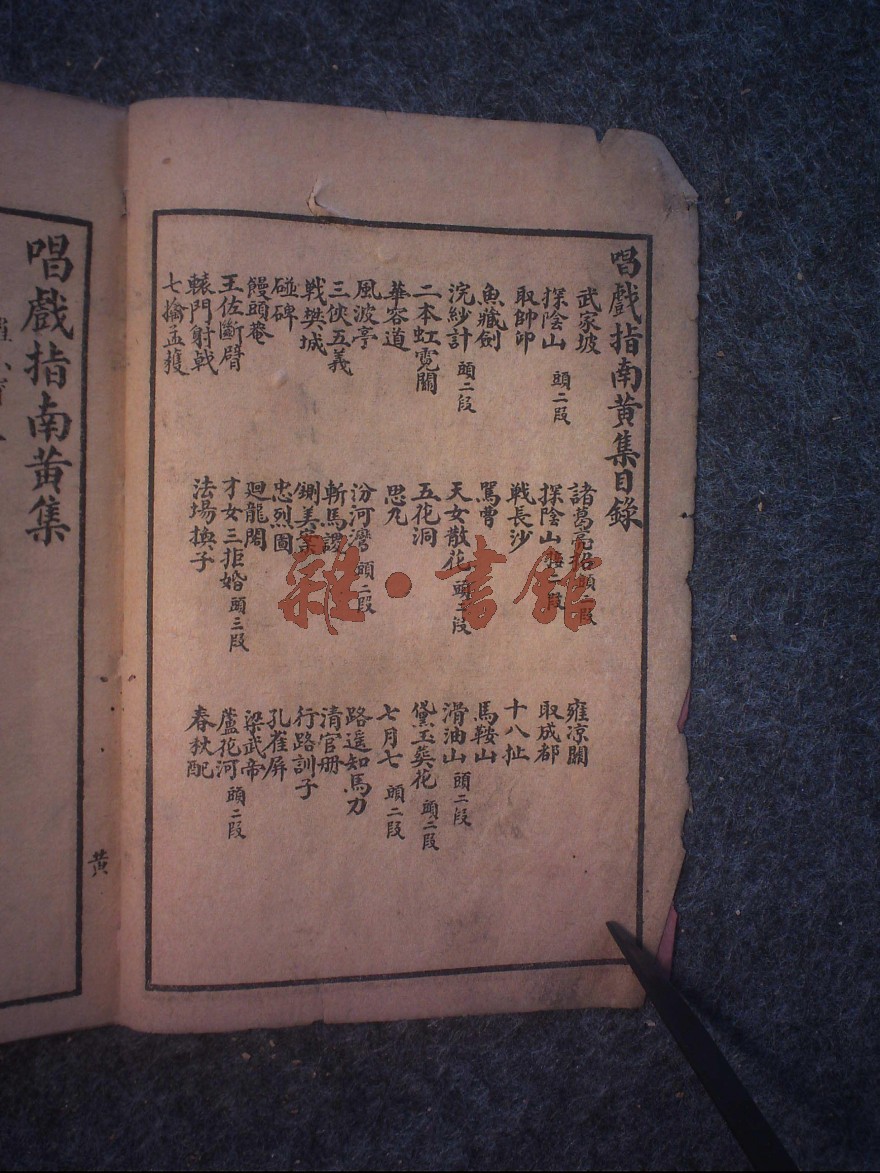 唱戲指南黃集目錄
武家坡
諸葛亮招頭二段
雍涼關
探陰山 頭二段
探陰山 接二段
取成都
取帥印
戰長沙
十八扯
魚藏劍
罵曹
馬鞍山
浣紗計 頭二段
天女散花 頭二段
滑油山 頭二段
二本虹霓關
五花洞
黛玉葬花 頭二段
華容道
思凡
七月七 頭二段
風波亭
汾河灣 頭二段
路遥知馬力
三俠五義
斬馬謖
清官册
戰樊城
鍘美案
行路訓子
碰碑
忠烈圖
孔雀屏
饅頭菴
廻龍閣
梁武帝
王佐斷臂
才女三拒婚 頭三段
蘆花河 頭二段
轅門射戟
法場換子
春秋配
七擒孟獲
黃
唱戲指南黃集
雜·書館